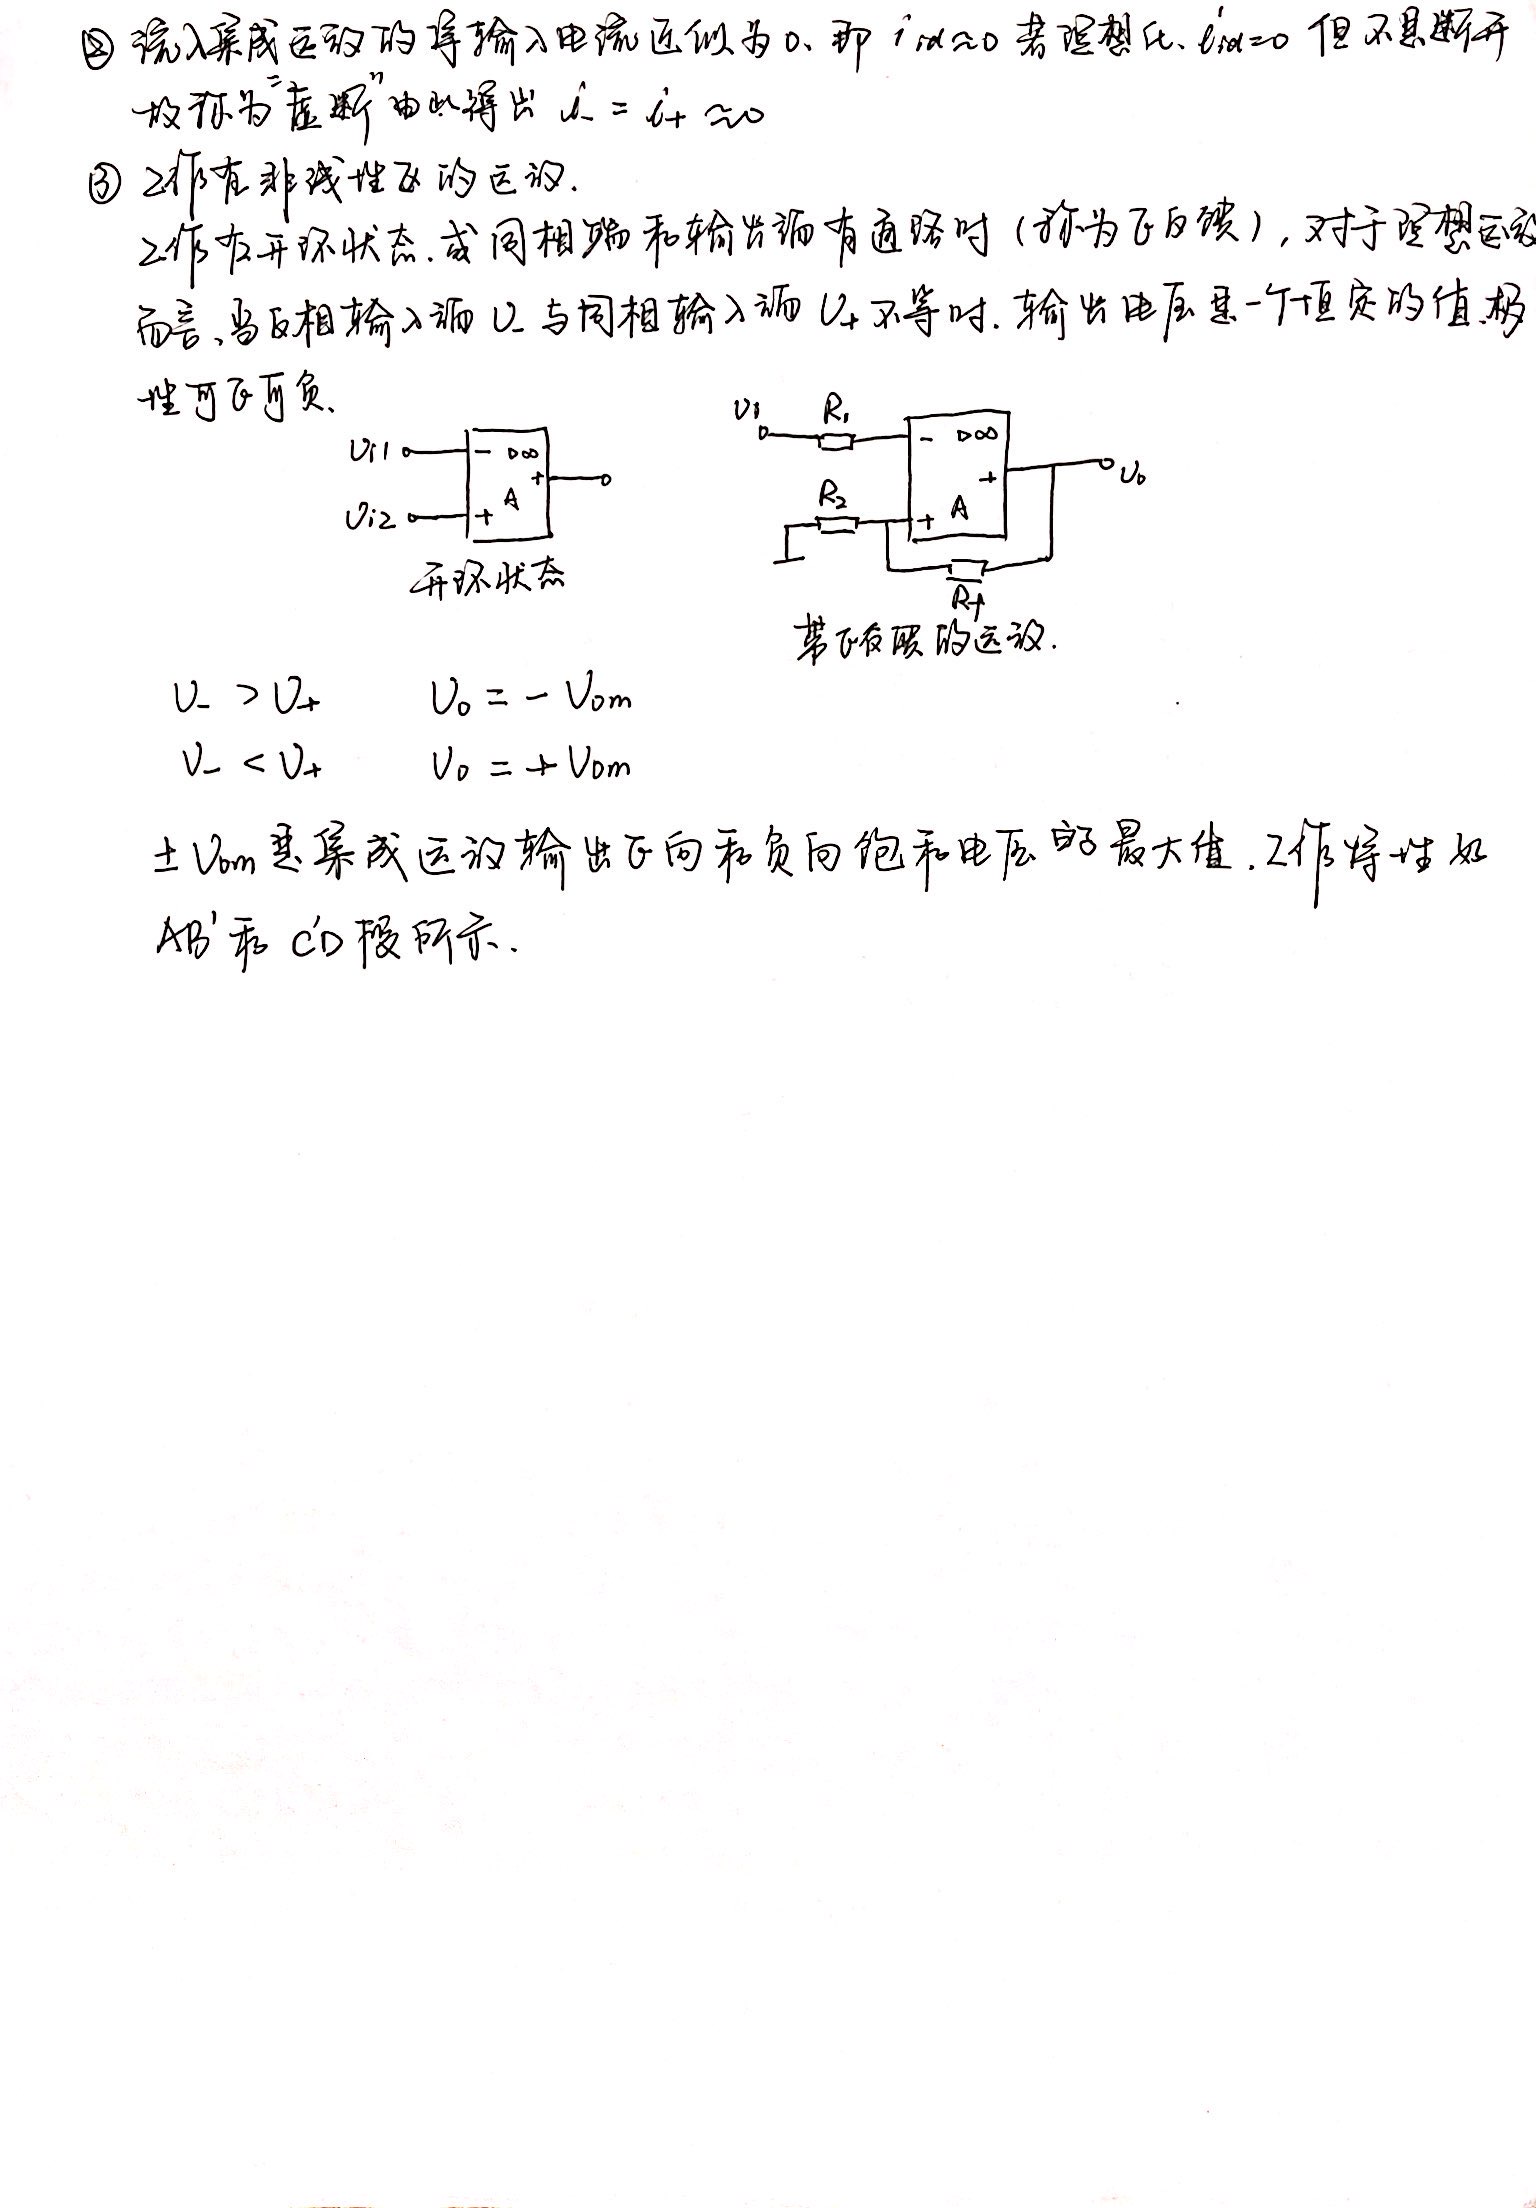 ② 流入集成运放的净输入电流近似为0、即 iid≈0 若理想化、iid=0 但不是断开
故称为"虚断"由此得出 i- = i+ ≈0
③ 工作在非线性区的运放.
工作在开环状态.或同相端和输出端有通路时(称为正反馈),对于理想运放
而言、当反相输入端U-与同相输入端U+不等时.输出电压是一个恒定的值.极
性可正可负.
Ui1 - ▷∞ + A Ui2 +
开环状态
Ui R1 - ▷∞ + A R2 + Uo Rf
带正反馈的运放.
U- > U+ Uo = - Uom
U- < U+ Uo = + Uom
±Uom是集成运放输出正向和负向饱和电压的最大值.工作特性如
AB'和C'D段所示.